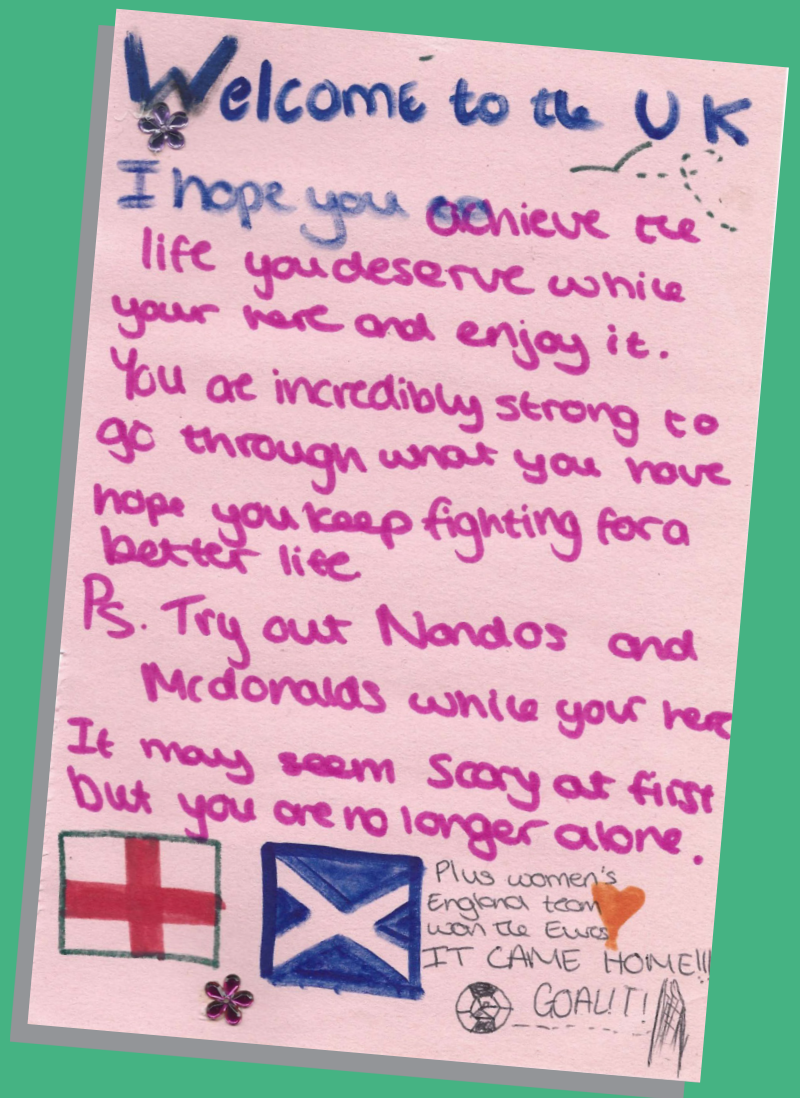 Welcome to the UK
I hope you achieve the
life you deserve while
your here and enjoy it.
You are incredibly strong to
go through what you have
hope you keep fighting for a
better life
Ps. Try out Nandos and
Mcdonalds while your here
It may seem Scary at first
but you are no longer alone.
Plus women's
England team
won the Euros
IT CAME HOME!!!
GOAL!T!